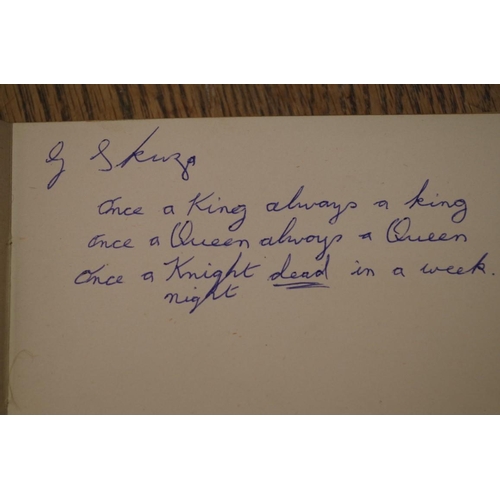 G Skuza
Once a King always a king
Once a Queen always a Queen
Once a Knight dead in a week.
night